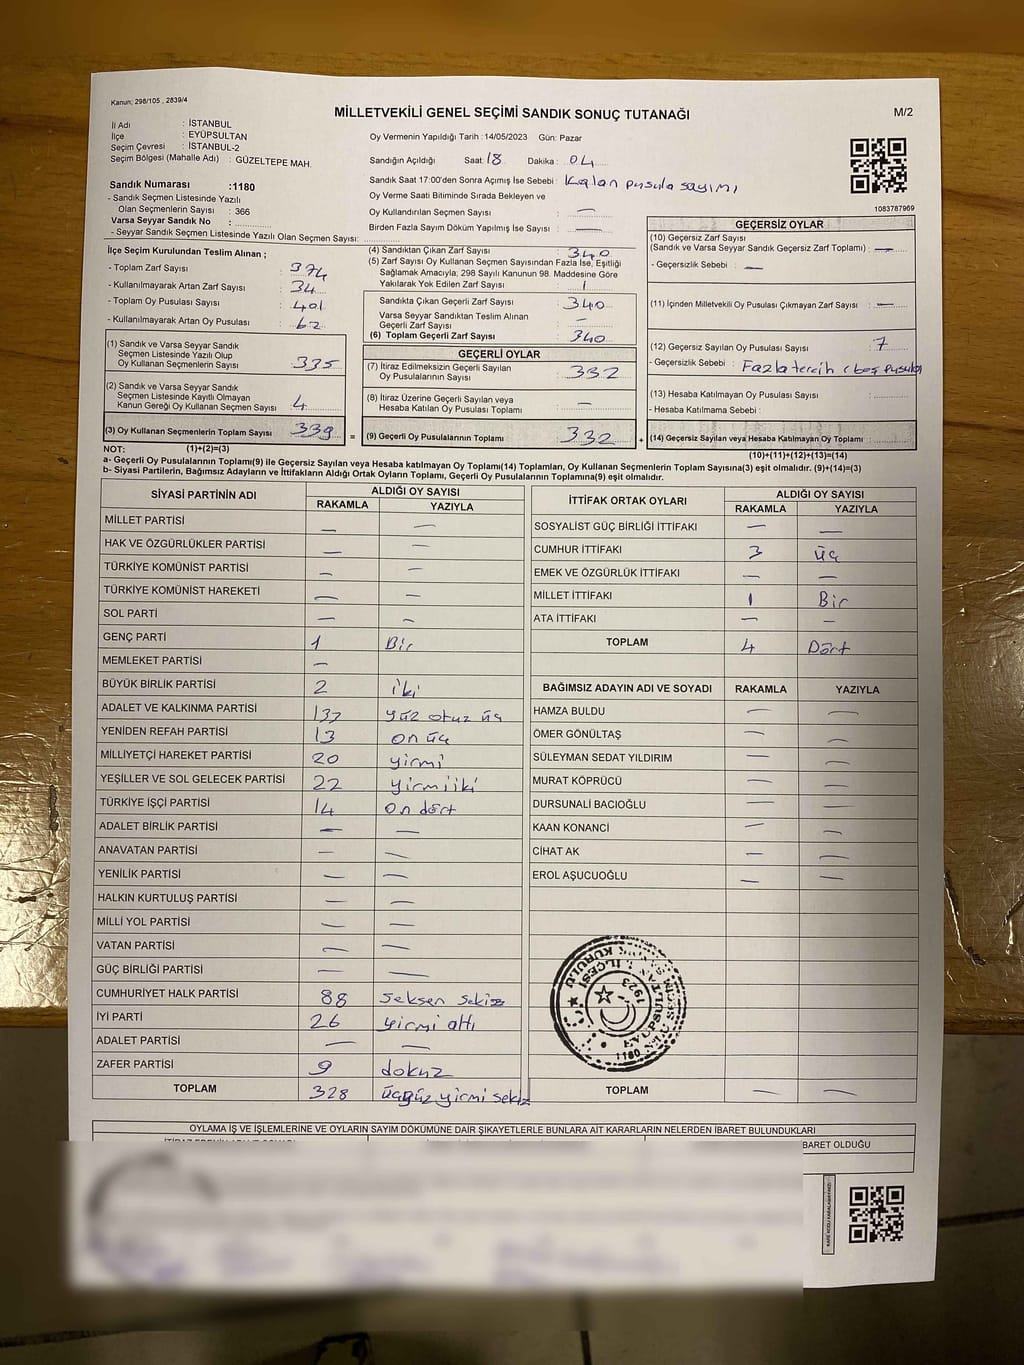 Kanun: 298/105 , 2839/4
MİLLETVEKİLİ GENEL SEÇİMİ SANDIK SONUÇ TUTANAĞI
M/2
İl Adı : İSTANBUL
İlçe : EYÜPSULTAN
Seçim Çevresi : İSTANBUL-2
Seçim Bölgesi (Mahalle Adı) : GÜZELTEPE MAH.
Sandık Numarası :1180
- Sandık Seçmen Listesinde Yazılı
Olan Seçmenlerin Sayısı : 366
Varsa Seyyar Sandık No :
- Seyyar Sandık Seçmen Listesinde Yazılı Olan Seçmen Sayısı:
Oy Vermenin Yapıldığı Tarih :14/05/2023 Gün: Pazar
Sandığın Açıldığı Saat: 18 Dakika : 04
Sandık Saat 17:00'den Sonra Açımış İse Sebebi : Kalan pusula sayımı
Oy Verme Saati Bitiminde Sırada Bekleyen ve
Oy Kullandırılan Seçmen Sayısı : —
Birden Fazla Sayım Döküm Yapılmış İse Sayısı : —
1083787969
İlçe Seçim Kurulundan Teslim Alınan ;
- Toplam Zarf Sayısı : 374
- Kullanılmayarak Artan Zarf Sayısı : 34
- Toplam Oy Pusulası Sayısı : 401
- Kullanılmayarak Artan Oy Pusulası : 62
(1) Sandık ve Varsa Seyyar Sandık
Seçmen Listesinde Yazılı Olup
Oy Kullanan Seçmenlerin Sayısı : 335
(2) Sandık ve Varsa Seyyar Sandık
Seçmen Listesinde Kayıtlı Olmayan
Kanun Gereği Oy Kullanan Seçmen Sayısı : 4
(3) Oy Kullanan Seçmenlerin Toplam Sayısı : 339
(4) Sandıktan Çıkan Zarf Sayısı : 340
(5) Zarf Sayısı Oy Kullanan Seçmen Sayısından Fazla İse, Eşitliği
Sağlamak Amacıyla; 298 Sayılı Kanunun 98. Maddesine Göre
Yakılarak Yok Edilen Zarf Sayısı : 1
Sandıkta Çıkan Geçerli Zarf Sayısı : 340
Varsa Seyyar Sandıktan Teslim Alınan
Geçerli Zarf Sayısı : —
(6) Toplam Geçerli Zarf Sayısı : 340
GEÇERLİ OYLAR
(7) İtiraz Edilmeksizin Geçerli Sayılan
Oy Pusulalarının Sayısı : 332
(8) İtiraz Üzerine Geçerli Sayılan veya
Hesaba Katılan Oy Pusulası Toplamı : —
= (9) Geçerli Oy Pusulalarının Toplamı : 332 +
GEÇERSİZ OYLAR
(10) Geçersiz Zarf Sayısı
(Sandık ve Varsa Seyyar Sandık Geçersiz Zarf Toplamı) : —
- Geçersizlik Sebebi : —
(11) İçinden Milletvekili Oy Pusulası Çıkmayan Zarf Sayısı : —
(12) Geçersiz Sayılan Oy Pusulası Sayısı : 7
- Geçersizlik Sebebi : Fazla tercih (boş pusula
(13) Hesaba Katılmayan Oy Pusulası Sayısı :
- Hesaba Katılmama Sebebi :
(14) Geçersiz Sayılan veya Hesaba Katılmayan Oy Toplamı :
NOT: (1)+(2)=(3)
(10)+(11)+(12)+(13)=(14)
a- Geçerli Oy Pusulalarının Toplamı(9) ile Geçersiz Sayılan veya Hesaba katılmayan Oy Toplamı(14) Toplamları, Oy Kullanan Seçmenlerin Toplam Sayısına(3) eşit olmalıdır. (9)+(14)=(3)
b- Siyasi Partilerin, Bağımsız Adayların ve İttifakların Aldığı Oyların Toplamı, Geçerli Oy Pusulalarının Toplamına(9) eşit olmalıdır.
SİYASİ PARTİNİN ADI
ALDIĞI OY SAYISI
RAKAMLA YAZIYLA
MİLLET PARTİSİ — —
HAK VE ÖZGÜRLÜKLER PARTİSİ — —
TÜRKİYE KOMÜNİST PARTİSİ — —
TÜRKİYE KOMÜNİST HAREKETİ — —
SOL PARTİ — —
GENÇ PARTİ 1 Bir
MEMLEKET PARTİSİ —
BÜYÜK BİRLİK PARTİSİ 2 iki
ADALET VE KALKINMA PARTİSİ 133 yüz otuz üç
YENİDEN REFAH PARTİSİ 13 on üç
MİLLİYETÇİ HAREKET PARTİSİ 20 yirmi
YEŞİLLER VE SOL GELECEK PARTİSİ 22 yirmi iki
TÜRKİYE İŞÇİ PARTİSİ 14 on dört
ADALET BİRLİK PARTİSİ — —
ANAVATAN PARTİSİ — —
YENİLİK PARTİSİ — —
HALKIN KURTULUŞ PARTİSİ — —
MİLLİ YOL PARTİSİ — —
VATAN PARTİSİ — —
GÜÇ BİRLİĞİ PARTİSİ — —
CUMHURİYET HALK PARTİSİ 88 seksen sekiz
İYİ PARTİ 26 yirmi altı
ADALET PARTİSİ — —
ZAFER PARTİSİ 9 dokuz
TOPLAM 328 üçyüz yirmi sekiz
İTTİFAK ORTAK OYLARI
ALDIĞI OY SAYISI
RAKAMLA YAZIYLA
SOSYALİST GÜÇ BİRLİĞİ İTTİFAKI — —
CUMHUR İTTİFAKI 3 üç
EMEK VE ÖZGÜRLÜK İTTİFAKI — —
MİLLET İTTİFAKI 1 Bir
ATA İTTİFAKI — —
TOPLAM 4 Dört
BAĞIMSIZ ADAYIN ADI VE SOYADI RAKAMLA YAZIYLA
HAMZA BULDU — —
ÖMER GÖNÜLTAŞ — —
SÜLEYMAN SEDAT YILDIRIM — —
MURAT KÖPRÜCÜ — —
DURSUNALİ BACIOĞLU — —
KAAN KONANCİ — —
CİHAT AK — —
EROL AŞUCUOĞLU — —
1923
TOPLAM — —
OYLAMA İŞ VE İŞLEMLERİNE VE OYLARIN SAYIM DÖKÜMÜNE DAİR ŞİKAYETLERLE BUNLARA AİT KARARLARIN NELERDEN İBARET BULUNDUKLARI
BARET OLDUĞU